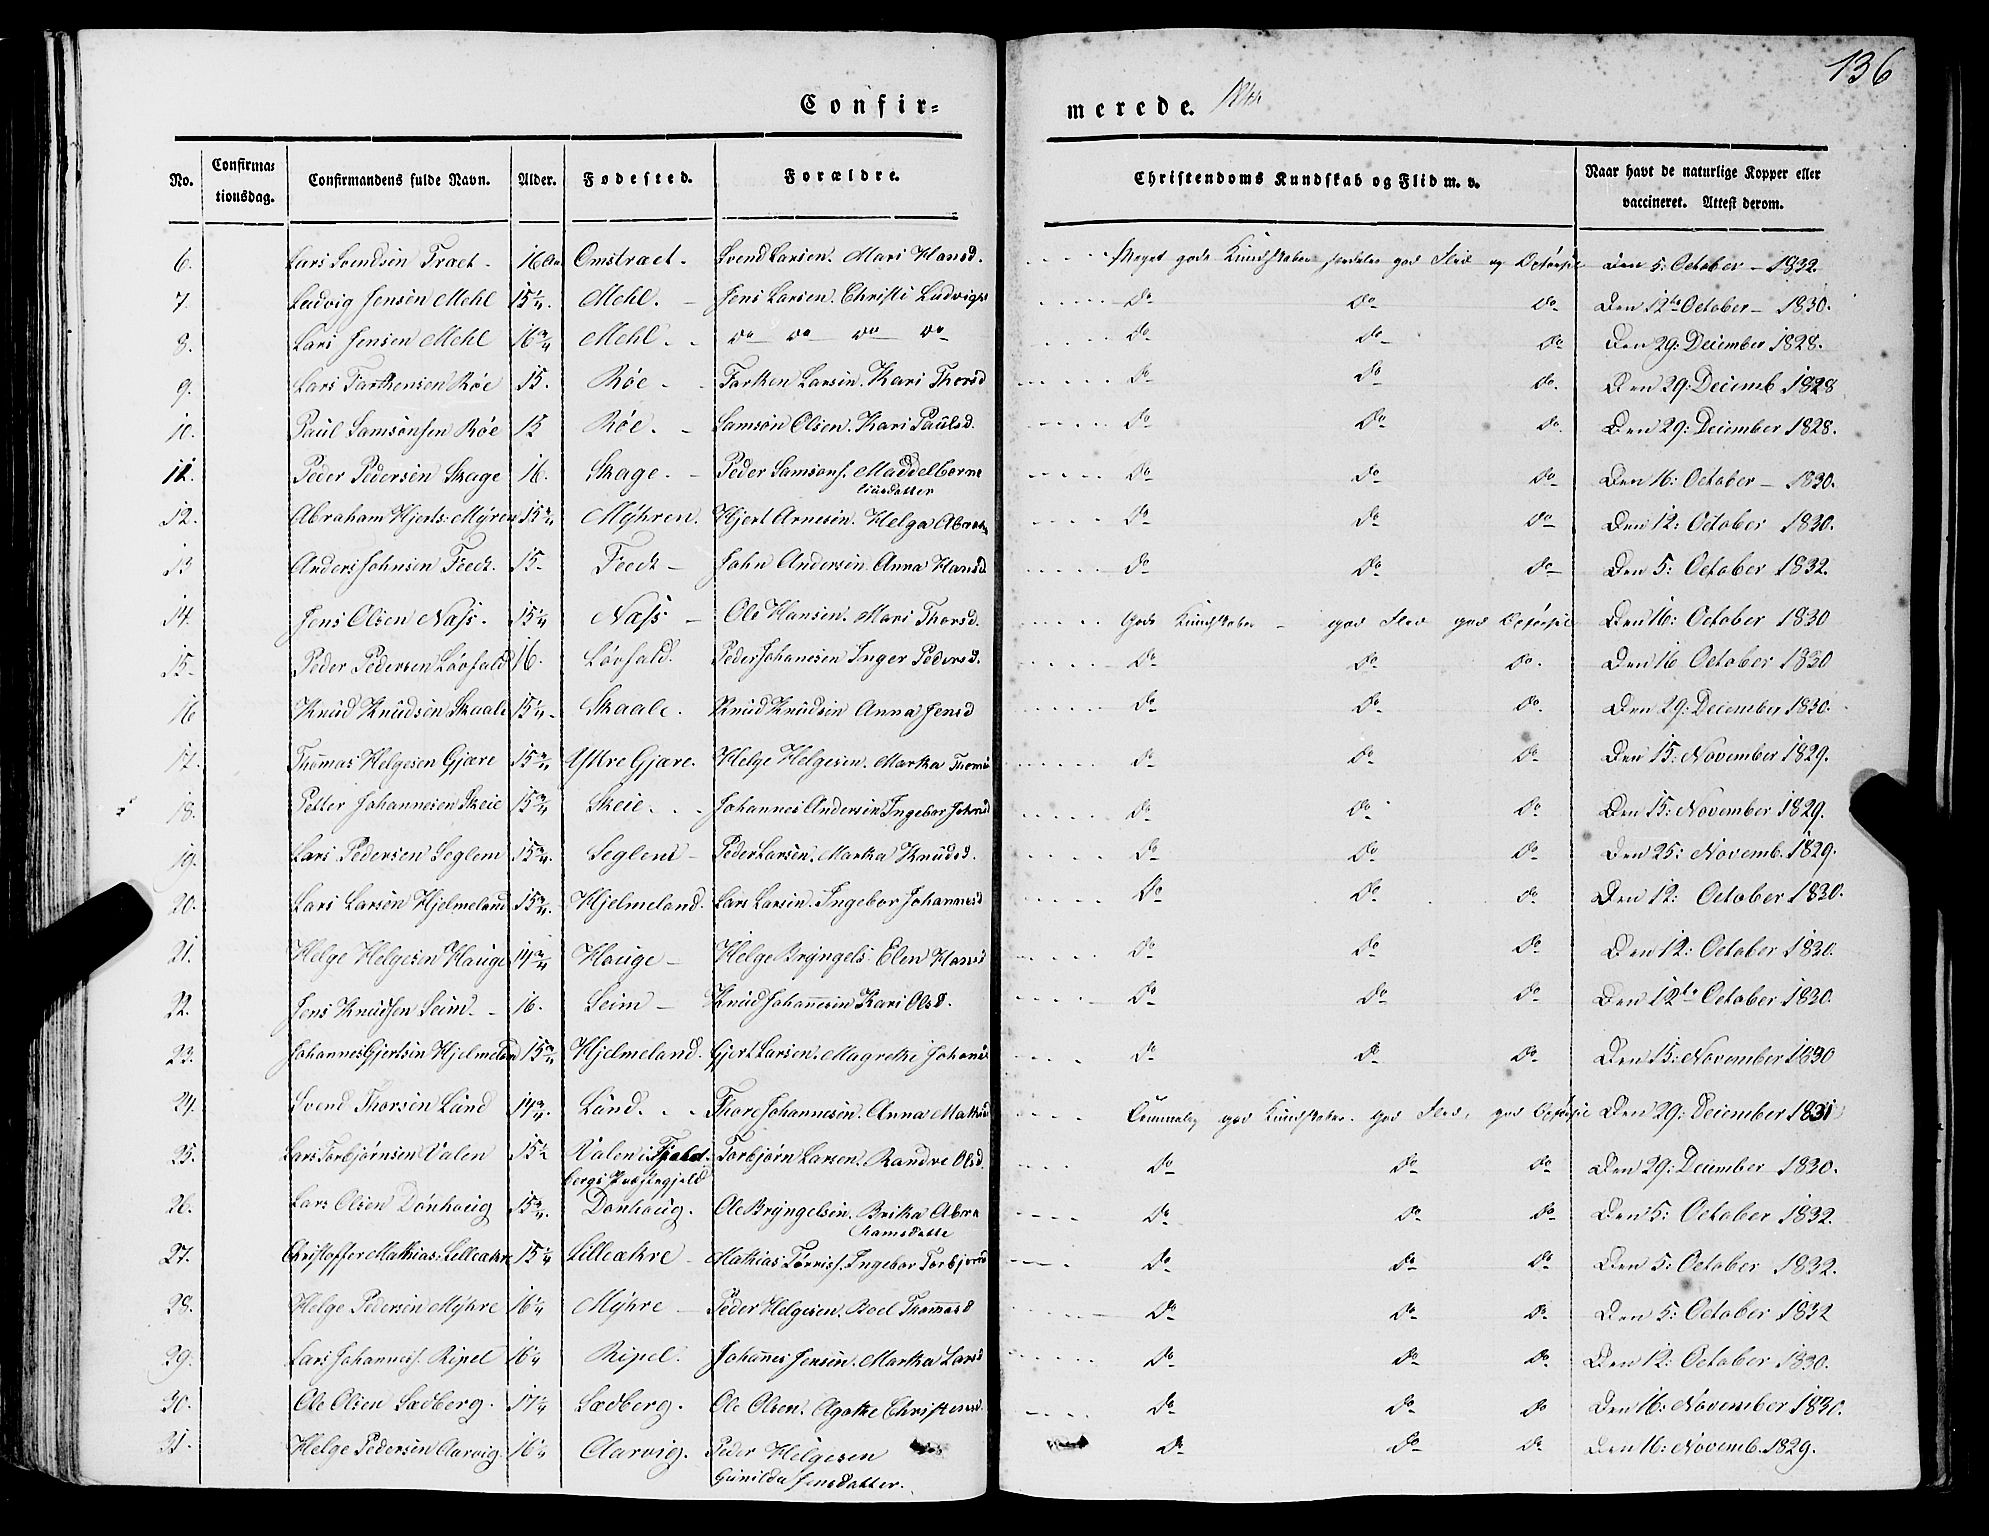 136
Confir= merede.
No. Confirma= tionsdag. Confirmandens fulde Navn. Alder. Fødested. Forældre. Christendoms Kundskab og Flid m. v. Naar havt de naturlige Kopper eller vaccineret. Attest derom.
6. Lars Svendsen Traet. 16 Omstraet. Svend Larsen. Mari Hansd. Meget gode Kundskaber god Flid og Den 5: October 1832
7. Ludvig Jensen Mehl 15 1/4. Mehl. Jens Larsen. Christi Ludvigs do do do Den 12te October 1830.
8. Lars Jensen Mehl 16 3/4 Mehl. do do do do do do do Den 29: December 1828.
9. Lars Tarkensen Røe 15. Røe Tarken Larsen. Kari Thorsd do do do. Den 29: Decemb 1828
10. Paul Samsonsen Røe 15 Røe. Samson Olsen. Kari Paulsd. do do do. Den 29: December 1828.
11. Peder Pedersen Skage 16. Skage. Peder Samsons. Maddelborne do do do Den 16: October 1830.
12. Abraham Hjerts: Mÿren 15 3/4 Mÿhren. Hjert Arnesen. Helga do do do Den 12: October 1830.
13 Anders Johnsen Teedt. 15 Teedt John Andersen Anna Hansd do do do Den 5: October 1832.
14. Jens Olsen Næss. 15 1/4 Næss Ole Hansen. Mari Thorsd. gode Kundskaber god Flid god Den 16: October 1830
15. Peder Pedersen Løvfald 16. Løvfald. Peder Johanesen Inger Pedersd. do do do. Den 16 October 1830
16 Knud Knudsen Skaale 15 1/4. Skaale. Knud Knudsen Anna Jensd do do do. Den 29: December 1830.
17. Thomas Helgesen Gjære 15 3/4 Ystre Gjære. Helge Helgesen. Martha do do do Den 15: November 1829.
18. Petter Johannesen Skeie 15 3/4 Skeie. Johannes Andersen Ingebor do do do Den 15: November 1829.
19. Lars Pedersen Seglem 15 3/4. Seglem Peder Larsen. Martha Knudsd. do do do Den 25: Novemb. 1829.
20. Lars Larsen Hjelmeland 15 3/4. Hjelmeland. Lars Larsen. Ingebor Johannesd do do do Den 12: October 1830.
21. Helge Helgesen Hauge 14 3/4 Hauge Helge Brÿngels. Elen Hansd do do do Den 12: October 1830.
22. Jens Knudsen Seim. 16. Seim Knud Johannesen Kari Olsd. do do do Den 12te October 1830.
23. Johannes Gjertsen Hjelmeland 15 3/4 Hjelmeland. Gjert Larsen. Magrethe do do do Den 15: November 1830
24. Svend Thorsen Lund 14 3/4. Lund. Thore Johannesen. Anna god Kundskaber. god Flid, god Den 29: December 1831
25. Lars Torbjørnsen Valen 15 Valen i Fjeld- Torbjørn Larsen. Randve Olsd. do do do Den 29: December 1830.
bergs Præstegjeld
26. Lars Olsen Dønhoug 15 3/4. Dønhoug. Ole Brÿngelsen. Brita Abra do do do Den 5: October 1832.
hamsdatte
27. Christoffer Mathias: Lilleakre 15 1/4 Lilleakre Mathias Tørriss. Ingebor do do do Den 5: October 1832.
28. Helge Pedersen Mÿhre 16 1/4 Mÿhre Peder Helgesen. Boel Thomasd do do do Den 5: October 1832
29. Lars Johanness. Ripel 16 1/4 Ripel. Johannes Jensen. Martha Larsd do do do. Den 12: October 1830.
30. Ole Olsen Sædberg. 17 1/4 Sædberg. Ole Olsen. Agathe Christensd. do do do Den 16: November 1830.
31. Helge Pedersen Aarvig 16 1/4 Aarvig. Peder Helgesen do do do Den 16: Novemb. 1829.
Gunilda Jensdatter.